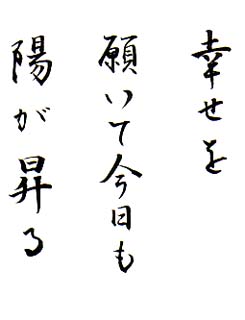 幸せを
願いて今日も
陽が昇る